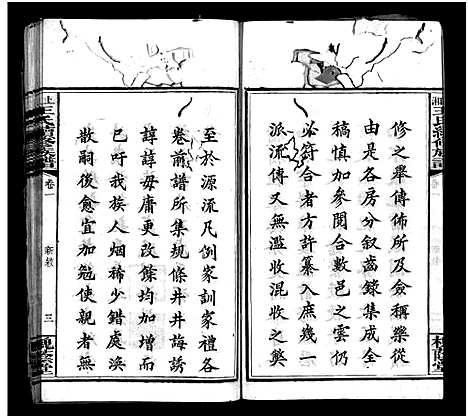 修之舉傳佈所及僉稱樂從
由是各房分叙齒錄集成全
稿慎加參閱合數邑之雲仍
必符合者方許纂入庶幾一
派流傳又無濫收混收之獘
王氏續修族譜
至於源流凡例家訓家禮各
卷前譜所集規條井井誨誘
諄諄毋庸更改條均加增而
已吁我族人烟稀少錯處渙
散嗣後愈宜加勉使親者無
王氏續修族譜
卷一
三
槐蔭堂